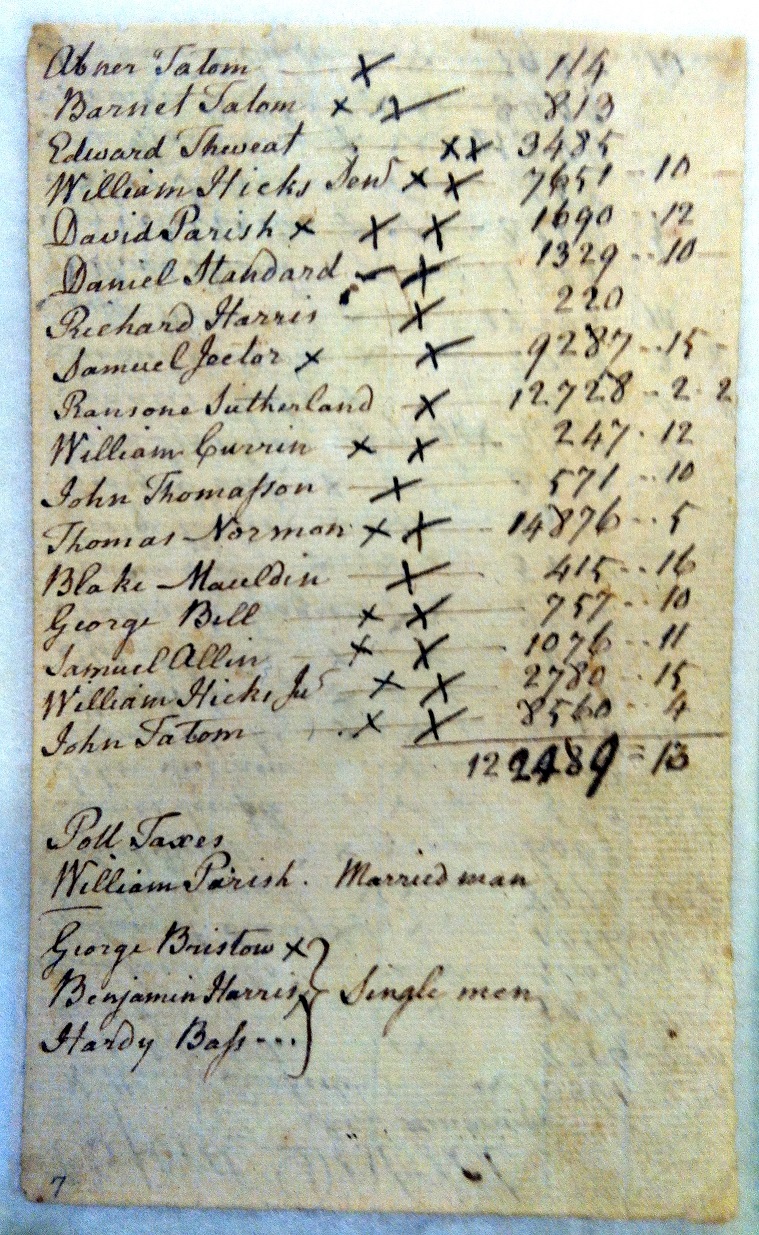 Abner Tatom X 114
Barnet Tatom x X 813
Edward Theweat XX 3485
William Hicks Senr X X 7651 - 10
David Parish x X X 1690 - 12
Daniel Standard X 1329 - 10
Richard Harris X 220
Samuel Jeeter x X 9287 - 15
Ransone Sutherland X 12728 - 2 - 2
William Currin x X 247 - 12
John Thomasson X 571 - 10
Thomas Norman X X 14876 - 5
Blake Mauldin X 415 - 16
George Bell x X 757 - 10
Samuel Allin x X 1076 - 11
William Hicks Jur x X 2780 - 15
John Tatom x X 8560 - 4
122489 = 13
Poll Taxes
William Parish. Married man
George Bristow x
Benjamin Harris Single men
Hardy Bass
7